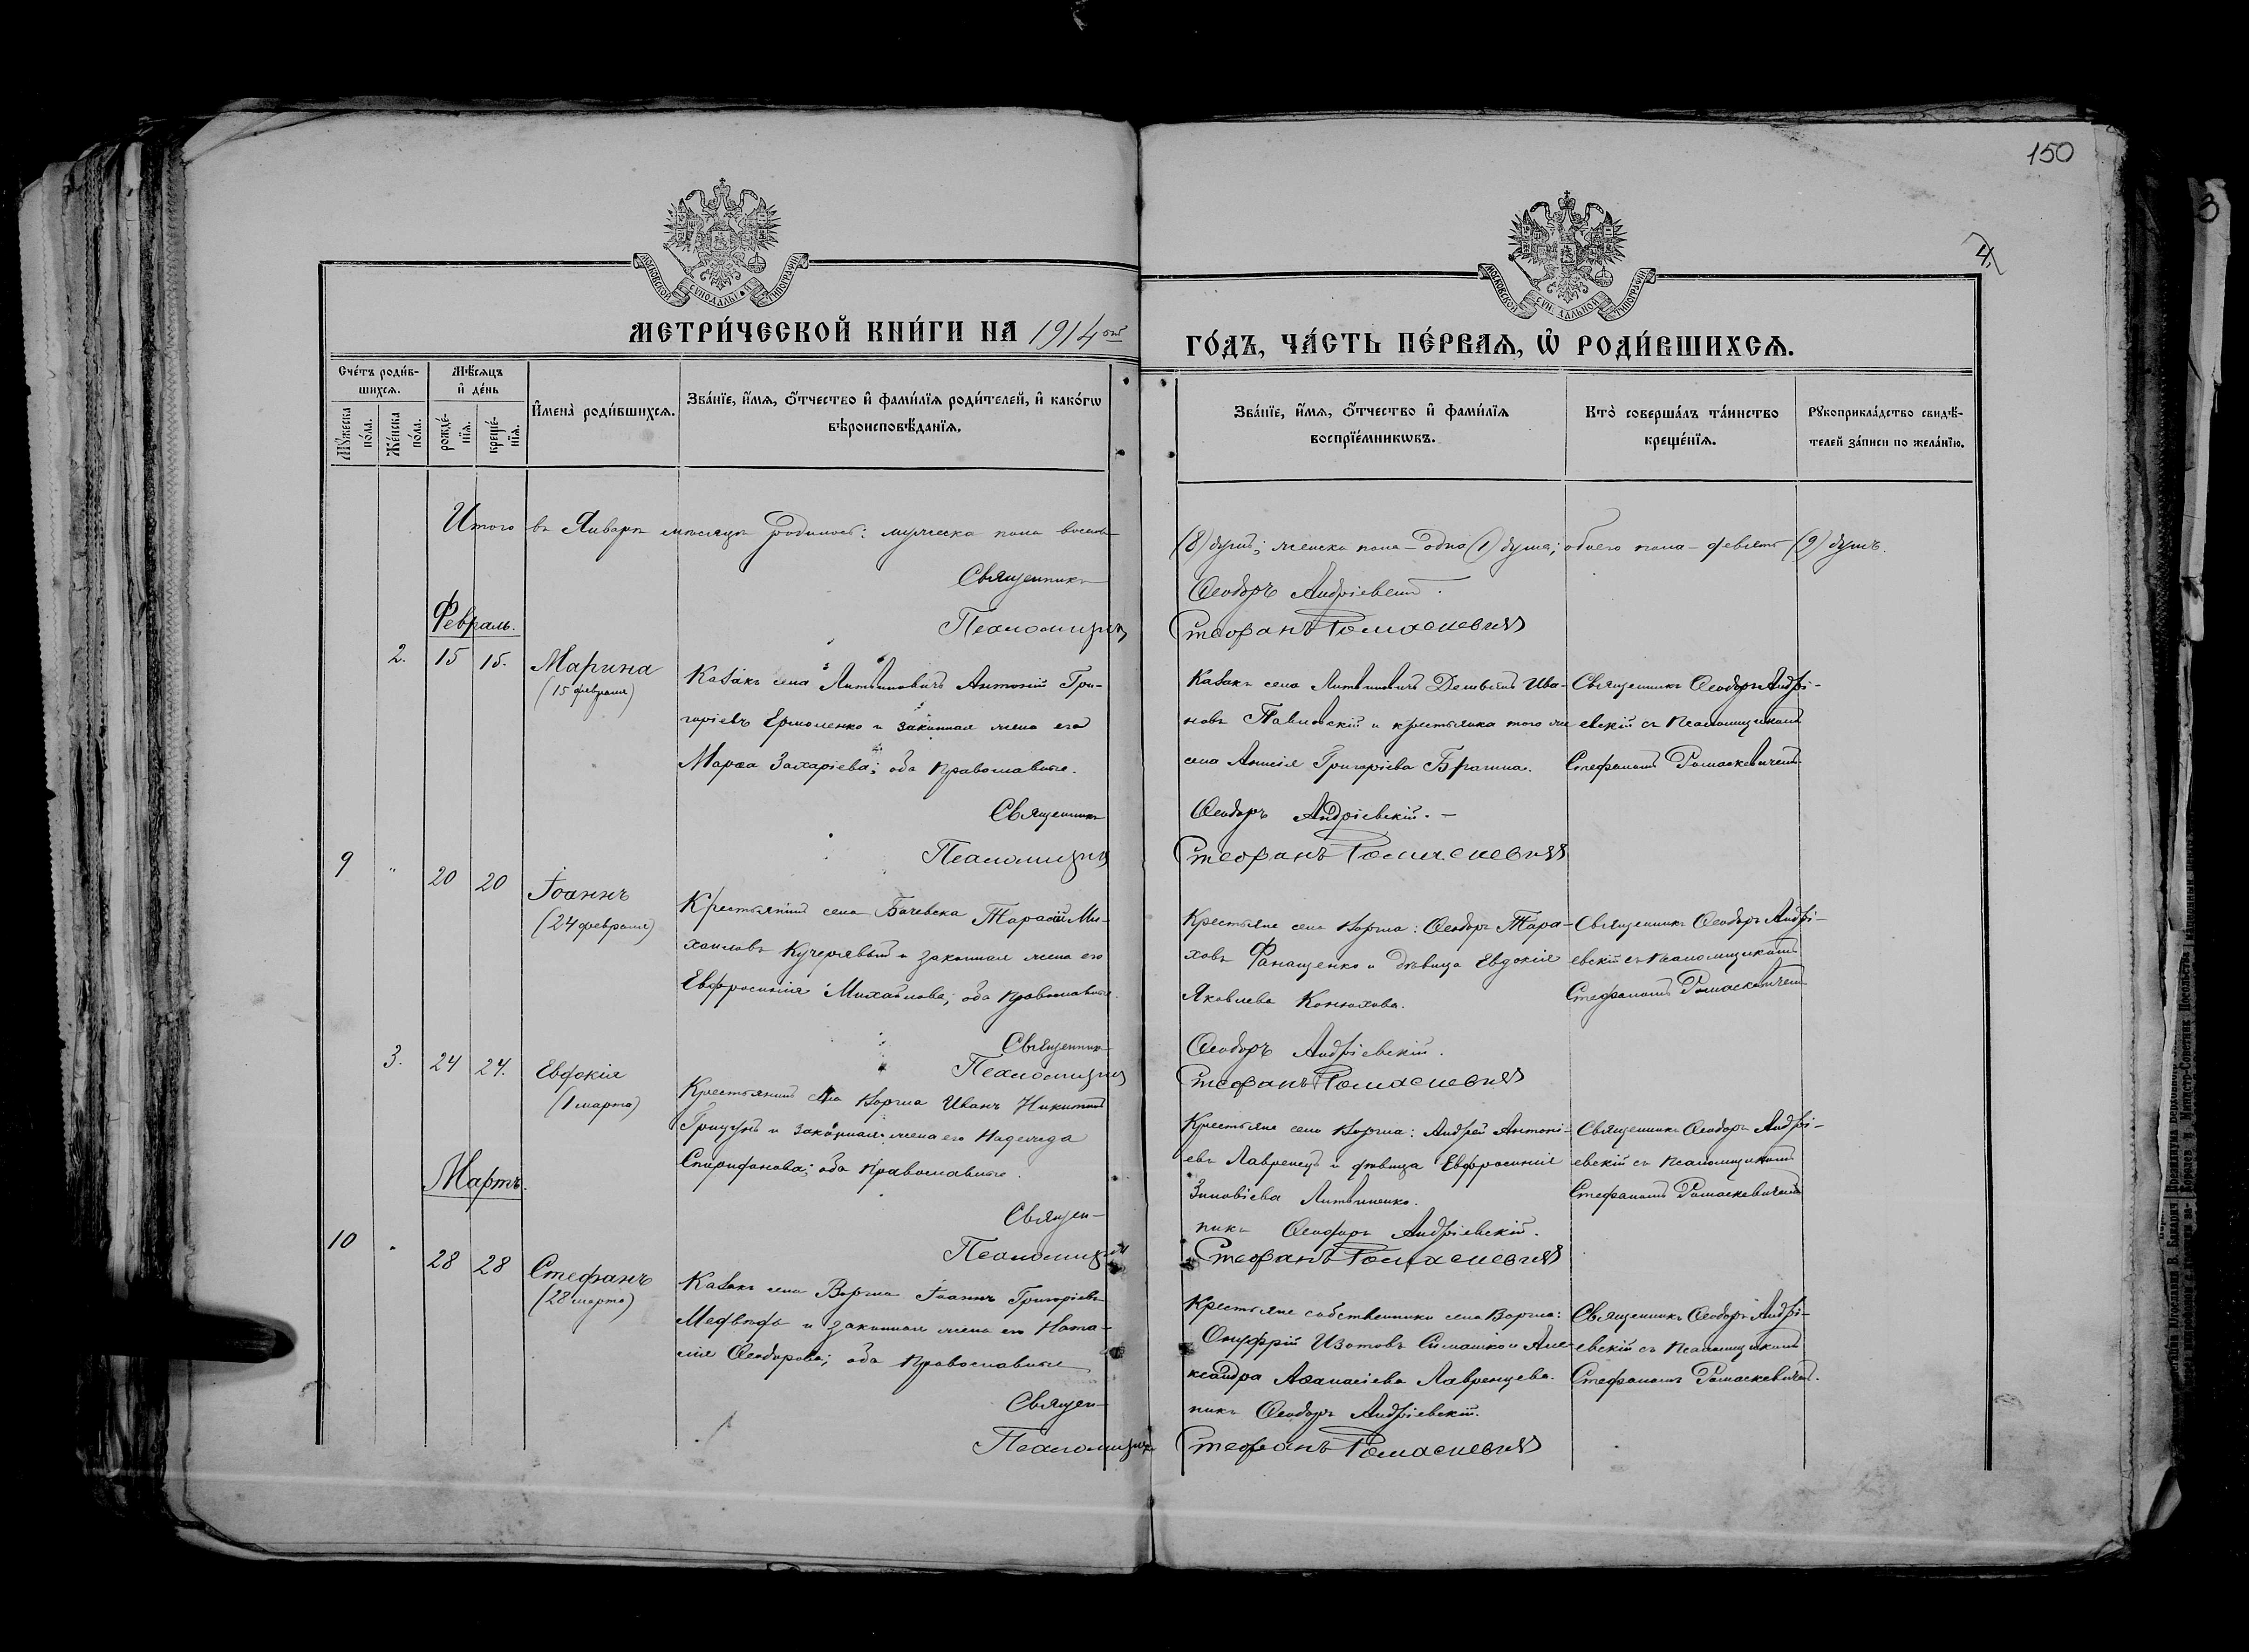 150
4.
МОСКОВСКОЙ СѴНОДАЛЬНОЙ ТИПОГРАФІИ
МОСКОВСКОЙ СѴНОДАЛЬНОЙ ТИПОГРАФІИ
МЕТРИ́ЧЕСКОЙ КНИ́ГИ НА 1914 ый
ГО́ДЪ, ЧА́СТЬ ПЕ́РВАѦ, Ѽ РОДИ́ВШИХСѦ.
Сче́тъ роди́в-
шихсѧ.
Мꙋ́жеска по́ла.
Же́нска по́ла.
Мѣ́сѧцъ
и҆ де́нь
рожде́-нїѧ.
креще́-нїѧ.
И҆мена̀ роди́вшихсѧ.
Зва́нїе, и҆́мѧ, о҆́тчество и҆ фами́лїѧ роди́телей, и҆ како́гѡ
вѣроисповѣ́данїѧ.
Зва́нїе, и҆́мѧ, о҆́тчество и҆ фами́лїѧ
воспрїе́мникѡвъ.
Кто̀ соверша́лъ та́инство
креще́нїѧ.
Рꙋкоприкла́дство свидѣ́-
телей за́писи по жела́нїю.
Итого въ Январѣ мѣсяцѣ родилось: мужеска пола восемь
(8) душъ; женска пола – одна (1) душа; обоего пола – девять (9) душъ.
Священникъ Ѳеодоръ Андріевскій.
Псаломщикъ Стефанъ Ромаскевичъ
Февраль.
2. 15 15. Марина
(15 февраля)
Казакъ села Литвиновичъ Антоній Гри-
горіевъ Ермоленко и законная жена его
Марѳа Захаріева; оба православные.
Казакъ села Литвиновичъ Ива-
новъ Павловскій и крестьянка того же
села Григоріева
Священникъ Ѳеодоръ Андрі-
евскій съ псаломщикомъ
Стефаномъ Ромаскевичемъ.
Священникъ Ѳеодоръ Андріевскій. –
Псаломщикъ Стефанъ Ромаскевичъ
9 " 20 20 Іоаннъ
(24 февраля)
Крестьянинъ села Бачевска Тарасій Ми-
хаиловъ Кучерявый и законная жена его
Евфросинія Михайлова; оба православные.
Крестьяне села Воргла: Ѳеодоръ Тара-
ховъ Фанащенко и дѣвица Евдокія
Яковлева Конюхова.
Священникъ Ѳеодоръ Андрі-
евскій съ псаломщикомъ
Стефаномъ Ромаскевичемъ
Священникъ Ѳеодоръ Андріевскій.
Псаломщикъ Стефанъ Ромаскевичъ
3. 24 24. Евдокія
(1 марта)
Крестьянинъ села Воргла Иванъ Никитинъ
Грицунъ и законная жена его Надежда
Спиридонова; оба православные.
Крестьяне села Воргла: Андрей Антоні-
евъ Лавренецъ и дѣвица Евфросинія
Зиновіева Литвиненко.
Священникъ Ѳеодоръ Андрі-
евскій съ псаломщикомъ
Стефаномъ Ромаскевичемъ
Священ-
никъ Ѳеодоръ Андріевскій.
Псаломщикъ Стефанъ Ромаскевичъ
Мартъ.
10 " 28 28 Стефанъ
(28 марта)
Казакъ села Воргла Іоаннъ Григоріевъ
Медвѣдь и законная жена его Ната-
лія Ѳеодорова; оба православные
Крестьяне собственники села Воргла:
Онуфрій Изотовъ Симашко и Але-
ксандра Аѳанасіева Лавренцева.
Священникъ Ѳеодоръ Андрі-
евскій съ псаломщикомъ
Стефаномъ Ромаскевичемъ.
Священ-
никъ Ѳеодоръ Андріевскій.
Псаломщикъ Стефанъ Ромаскевичъ